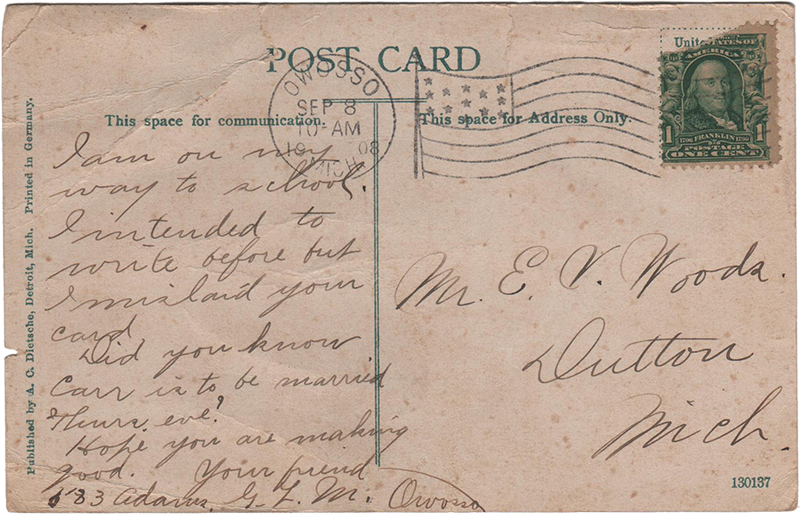 POST CARD
OWOSSO
SEP 8
10 - AM
19 08
MICH
Unit
STATES OF
AMERICA
1706 FRANKLIN 1790
1 1
POSTAGE
ONE CENT
This space for communication.
This space for Address Only.
I am on my
way to school.
I intended to
write before but
I mislaid your
card
Did you know
Carr is to be married
Thurs. eve?
Hope you are making
good. Your friend
Adams, G. L. M. Owosso
Mr. E. V. Woods.
Dutton
Mich.
Published by A. C. Dietsche, Detroit, Mich. Printed in Germany.
130137